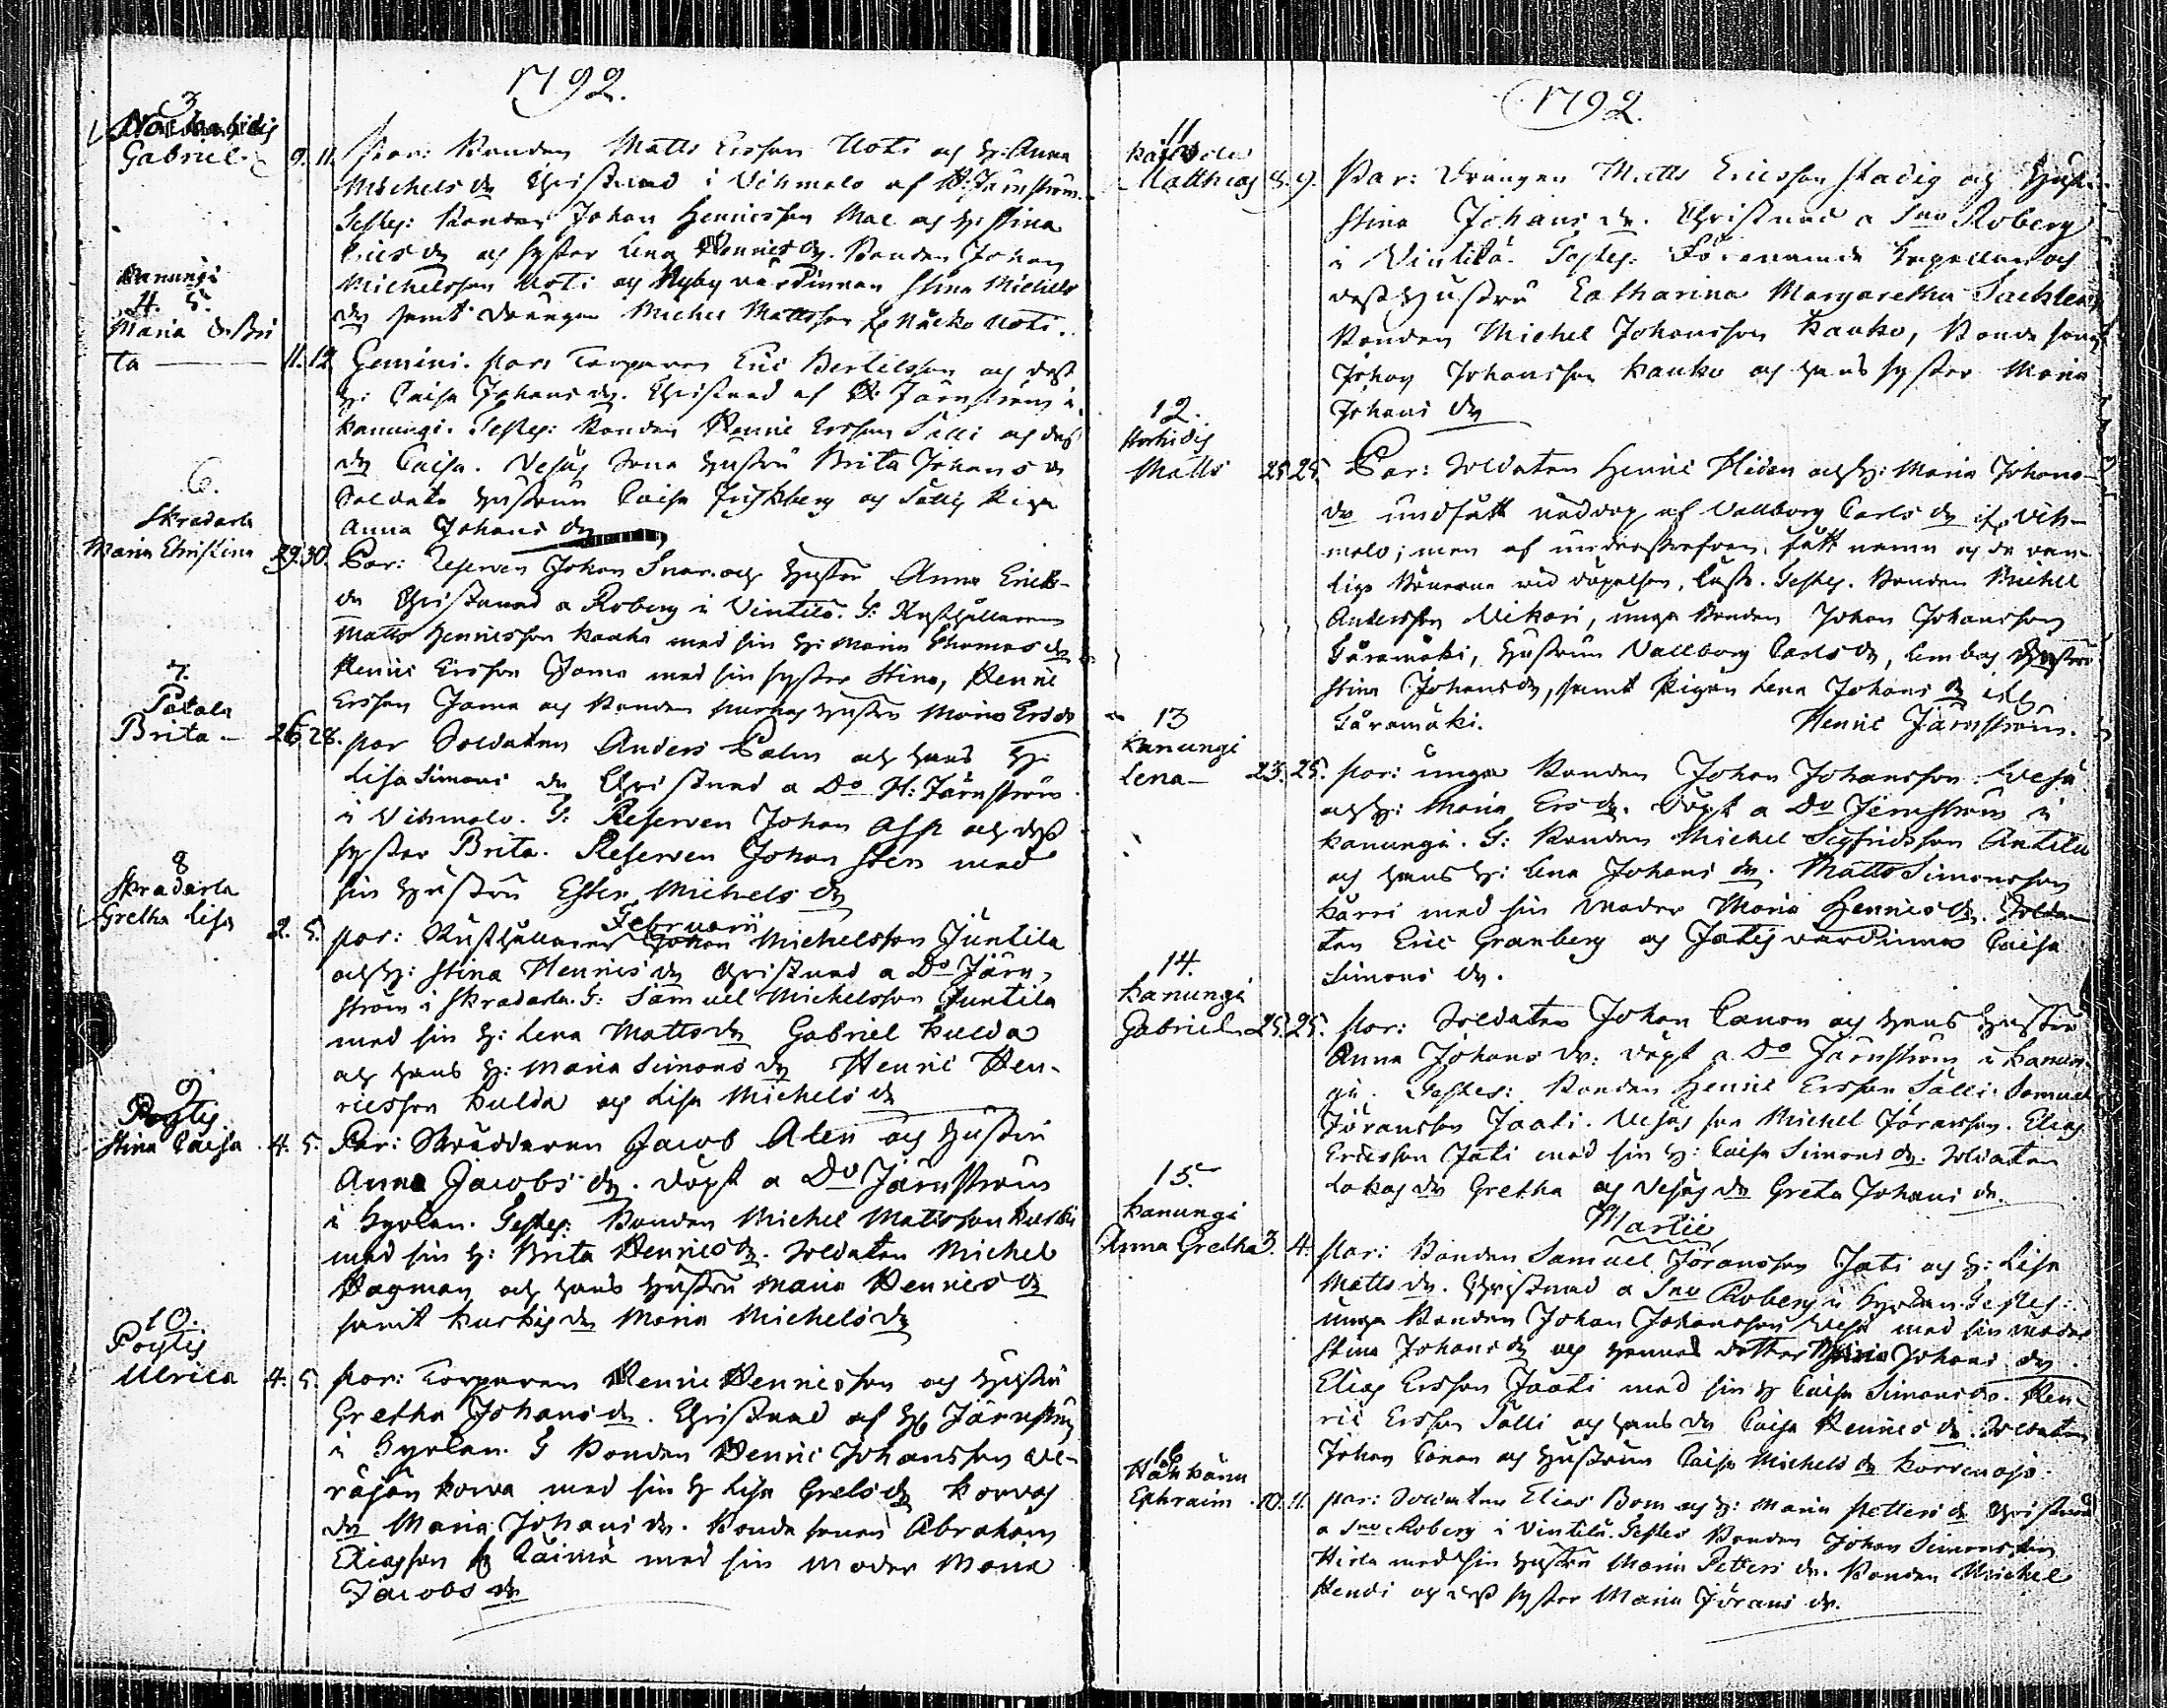 1792.
3
Gabriel. 9. 11. Par: Bonden Matts Ersson Uoti och H: Anna
Michels dr Christnad i Vihmalo af H: Järnström.
Testes: Bonden Johan Henricsson Mac och H: Stina
Erics dr och syster Lena Henrics dr. Bonden Johan
Michelsson Uoti och Nyby värdinnan Stina Michels
dr samt drängen Michel Mattsson Uoti.
Kanungi
4. 5.
Maria & Bri
ta 11. 12. Gemini. Par: Torparen Eric Bertilsson och dess
H: Caisa Johans dr. Christnad af H: Järnström i
Kanungi. Testes: Bonden Henric Ersson Sälli och dess
dr Caisa. Vesas Sona hustru Brita Johans dr
Soldats hustrun Caisa och Sällis Piga
Anna Johans dr
6.
Skradarla
Maria Christina 29. 30. Par: Reserven Johan Snar. och hustru Anna Erics
dr Christnad a Roberg i Vintilä. T: Rusthållaren
Matts Henricsson Kauko med sin H: Maria Thomas dr
Henric Ersson Jama med sin syster Stina, Henric
Ersson Jama och Bonden hustru Maria Ers dr
7.
Pätala
Brita 26. 28. Par Soldaten Anders Palm och hans H:
Lisa Simons dr Christnad a Do H: Järnström
i Vihmalo. T: Reserven Johan Asp och dess
syster Brita. Reserven Johan Sten med
sin hustru Ester Michels dr
Februarii
8
Skradarla
Gretha Lisa 2. 5. Par: Rusthållaren Johan Michelsson Juntila
och H: Stina Henrics dr Christnad a Do Järn-
ström i Skradarla. T: Samuel Michelsson Juntila
med sin H: Lena Matts dr Gabriel Kulda
och hans H: Maria Simons dr Henric Hen-
ricsson Kulda och Lisa Michels dr
9
Pöytis
Stina Caisa 4. 5. Par: Skräddaren Jacob Alen och hustru
Anna Jacobs dr. döpt a Do Järnström
i Hyvlan. Testes: Bonden Michel Mattsson Kurki
med sin H: Brita Henrics dr. Soldaten Michel
Hagman och hans hustru Maria Henrics dr
samt Kurkis dr Maria Michels dr
10.
Pöytis
Ulrica 4. 5. Par: Torparen Henric Henricsson och hustru
Gretha Johans dr. Christnad af H: Järnström
i Hyvlan. T Bonden Henric Johansson
Korva med sin H Lisa Grels dr Korvas
dr Maria Johans dr. Bonde sonen Abraham
Eliasson Caimä med sin moder Maria
Jacobs dr
1792.
11
Matthias 8. 9. Par: Drängen Matts Ericsson Stadig och Hust.
Stina Johans dr. Christnad a Sno Roberg
i Vintilä. Testes: Förenämde Capellan och
dess hustru Catharina Margaretha Sachlen
Bonden Michel Johansson Kauko, Bonde sonen
Johan Johansson Kauko och hans syster Maria
Johans dr
12.
Matts 25. 25. Par: Soldaten Henric Hiden och H: Maria Johans
dr undfått nöddop af Vallborg Carls dr ifr. Vih-
malo; men af underskrefven, fått namn och de van-
liga Bönerna vid döpelsen, läst. Testes. Bonden Michel
Andersson Nikari, unga Bonden Johan Johansson
Isåramäki, hustrun Vallborg Carls dr, hustru
Stina Johans dr, samt Pigan Lena Johans dr
Isåramäki. Henric Järnström.
13
Kanungi
Lena 23. 25. Par: unga Bonden Johan Johansson Vesa
och H: Maria Ers dr. döpt a Do Järnström i
Kanungi. T: Bonden Michel Sigfridsson Antila
och hans H: Lena Johans dr. Matts Simonsson
Kärri med sin moder Maria Henrics dr. Solda-
ten Eric Granberg och Jatis värdinna Caisa
Simons dr.
14.
Kanungi
Gabriel 25. 25. Par: Soldaten Johan Canon och hans hustru
Anna Johans dr. döpt a Do Järnström i Kanun-
gi. Testes: Bonden Henric Ersson Sälli. Samuel
Jöransson Jaati. Vesas son Michel Jöransson. Elias
Ericsson Jati med sin H: Caisa Simons dr. Soldaten
Lokas dr Gretha och Vesas dr Greta Johans dr.
Martii
15.
Kanungi
Anna Gretha 3. 4. Par: Bonden Samuel Jöransson Jati och H: Lisa
Matts dr. Christnad a Sno Roberg i Hyvlan. Testes:
unga Bonden Johan Johansson Vesa med sin moder
Stina Johans dr och hennes dotter Maria Johans dr.
Elias Ersson Jaati med sin H Caisa Simons dr. Hen-
ric Ersson Sälli och hans dr Caisa Henrics dr. Soldaten
Johan Canon och hustrun Caisa Michels dr Korvenoja.
16
Ephraim 10. 11. Par: Soldaten Elias Bom och H: Maria Petters dr Christnad
a Sno Roberg i Vintilä. Testes Bonden Johan Simonsson
Hirla med sin hustru Maria Peters dr. Bonden Michel
Hendi och dess syster Maria Jörans dr.